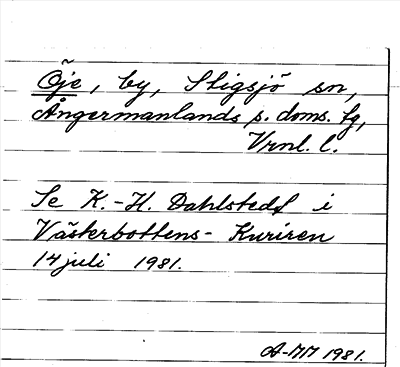 Öje, by, Stigsjö sn,
Ångermanlands s. doms. fg,
Vrnl. l.
Se K.-H. Dahlstedt i
Västerbottens-Kuriren
14 juli 1981.
A-MM 1981.